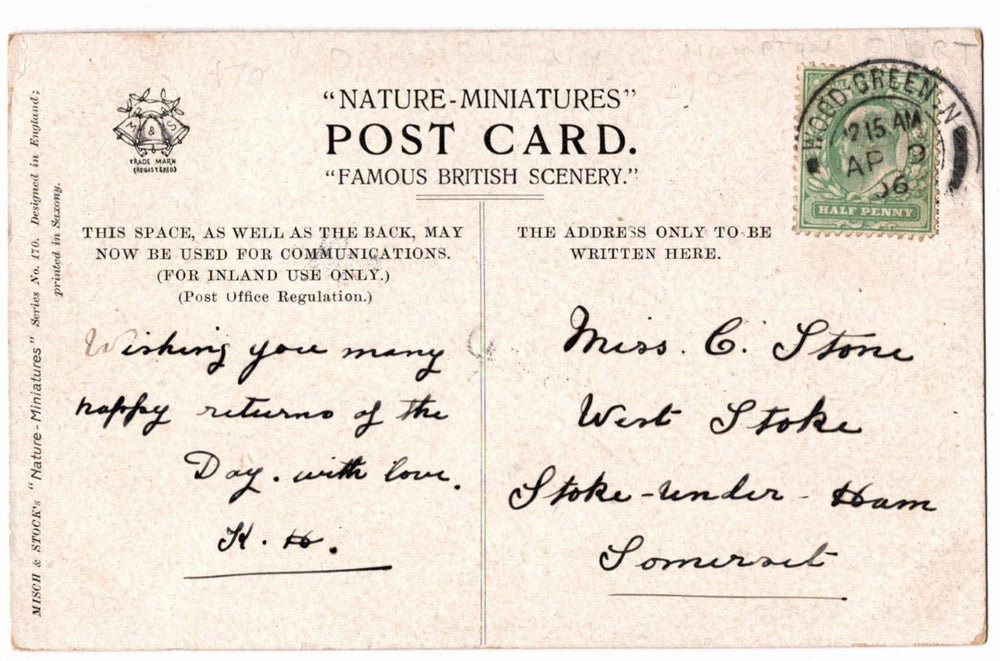 "NATURE-MINIATURES"
POST CARD.
"FAMOUS BRITISH SCENERY."
M & S
TRADE MARK
(REGISTERED)
WOOD-GREEN-N
12 15 AM
AP 9
06
HALF PENNY
THIS SPACE, AS WELL AS THE BACK, MAY
NOW BE USED FOR COMMUNICATIONS.
(FOR INLAND USE ONLY.)
(Post Office Regulation.)
Wishing you many
happy returns of the
Day. with love.
K. H.
THE ADDRESS ONLY TO BE
WRITTEN HERE.
Miss. C. Stone
West Stoke
Stoke-under-Ham
Somerset
MISCH & STOCK's "Nature-Miniatures" Series No. 170. Designed in England;
printed in Saxony.